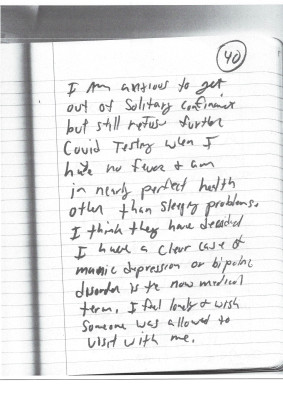 40
I am anxious to get
out of Solitary confinement
but still refuse further
Covid Testing when I
have no fever & am
in nearly perfect health
other than sleeping problems.
I think they have decided
I have a clear case of
manic depression or bipolar
disorder is the now medical
term. I feel lonely & wish
someone was allowed to
visit with me.